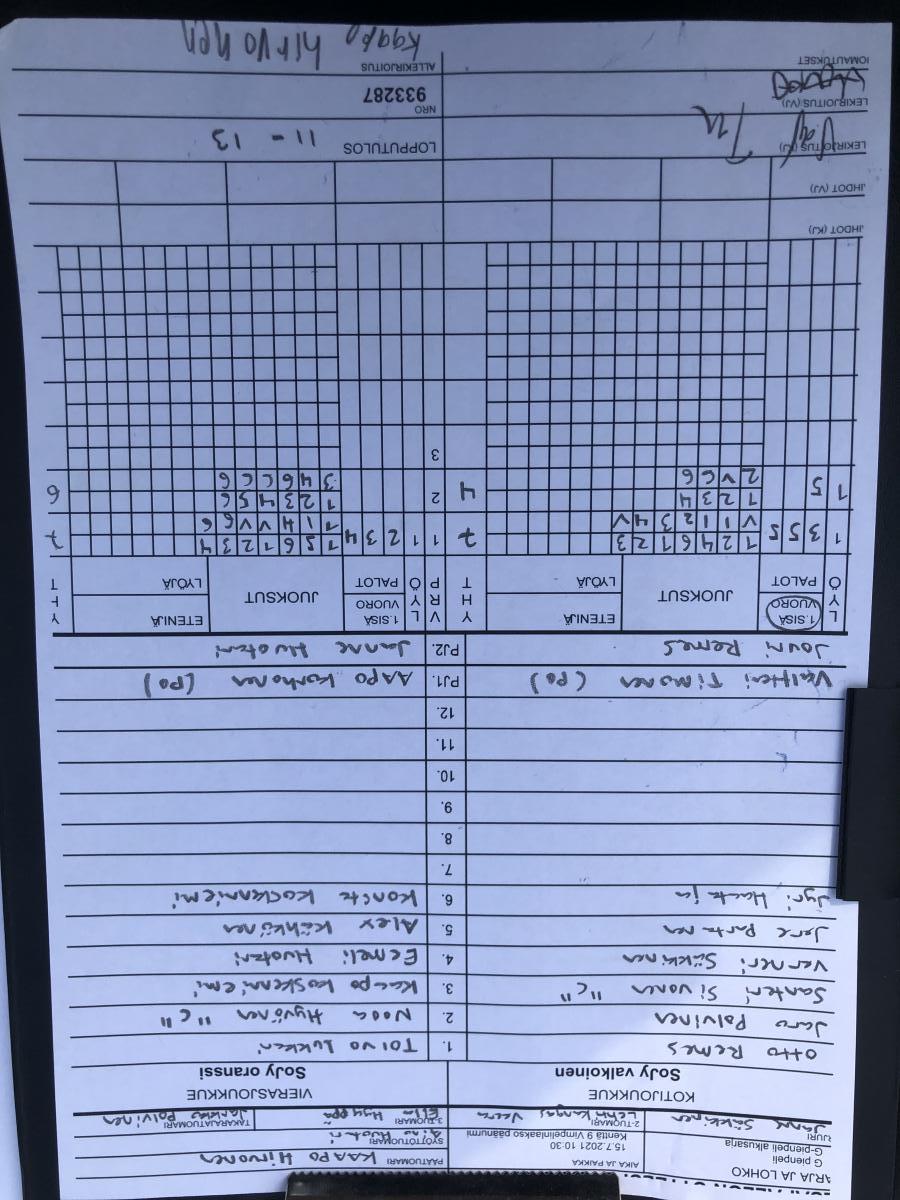 ARJA JA LOHKO
G pienpeli
G-pienpeli alkusarja
AIKA JA PAIKKA
15.7.2021 10:30
Kenttä 9 Vimpelinlaakso päänurmi
PÄÄTUOMARI KAAPO Hirvonen
SYÖTTÖTUOMARI Aino Huotari
RJURI Janne Säkkinen
2-TUOMARI Lehtikangas Veera
3-TUOMARI Ella Hyyppä
TAKARAJATUOMARI Jarkko Polvinen
KOTIJOUKKUE VIERASJOUKKUE
SoJy valkoinen SoJy oranssi
Otto Remes 1. Toivo Lukkari
Jaro Polvinen 2. Nooa Hyvönen "C"
Santeri Sivonen "C" 3. Kaapo Koskenniemi
Verneri Säkkinen 4. Eemeli Huotari
Jere Partanen 5. Alex Kähkönen
Jyri Haataja 6. Konsta Koskenniemi
7.
8.
9.
10.
11.
12.
Valtteri Timonen (PO) PJ1. AAPO Korhonen (PO)
Jouni Remes PJ2. Janne Huotari
L Y Ö 1.SISÄ VUORO PALOT JUOKSUT ETENIJÄ LYÖJÄ Y H T V R P L Y Ö 1.SISÄ VUORO PALOT JUOKSUT ETENIJÄ LYÖJÄ Y H T
1 3 5 5 5 1 2 4 6 1 2 3 7 1 1 2 3 4 1 5 6 1 2 3 4 7
V 1 1 2 3 4 V 1 1 4 V V 6 6
1 5 1 2 3 4 4 2 1 2 3 4 5 6 6
2 V C 6 3 4 6 C C 6
3
JHDOT (KJ)
JHDOT (VJ)
LEKIRJOITUS (KJ)
LOPPUTULOS 11 - 13
LEKIRJOITUS (VJ)
NRO 933287
IOMAUTUKSET
ALLEKIRJOITUS Kaapo hirvonen